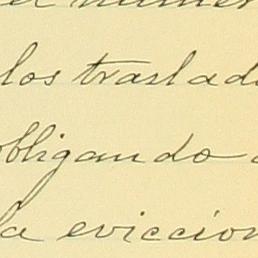 los traslad
obligando a
la eviccion